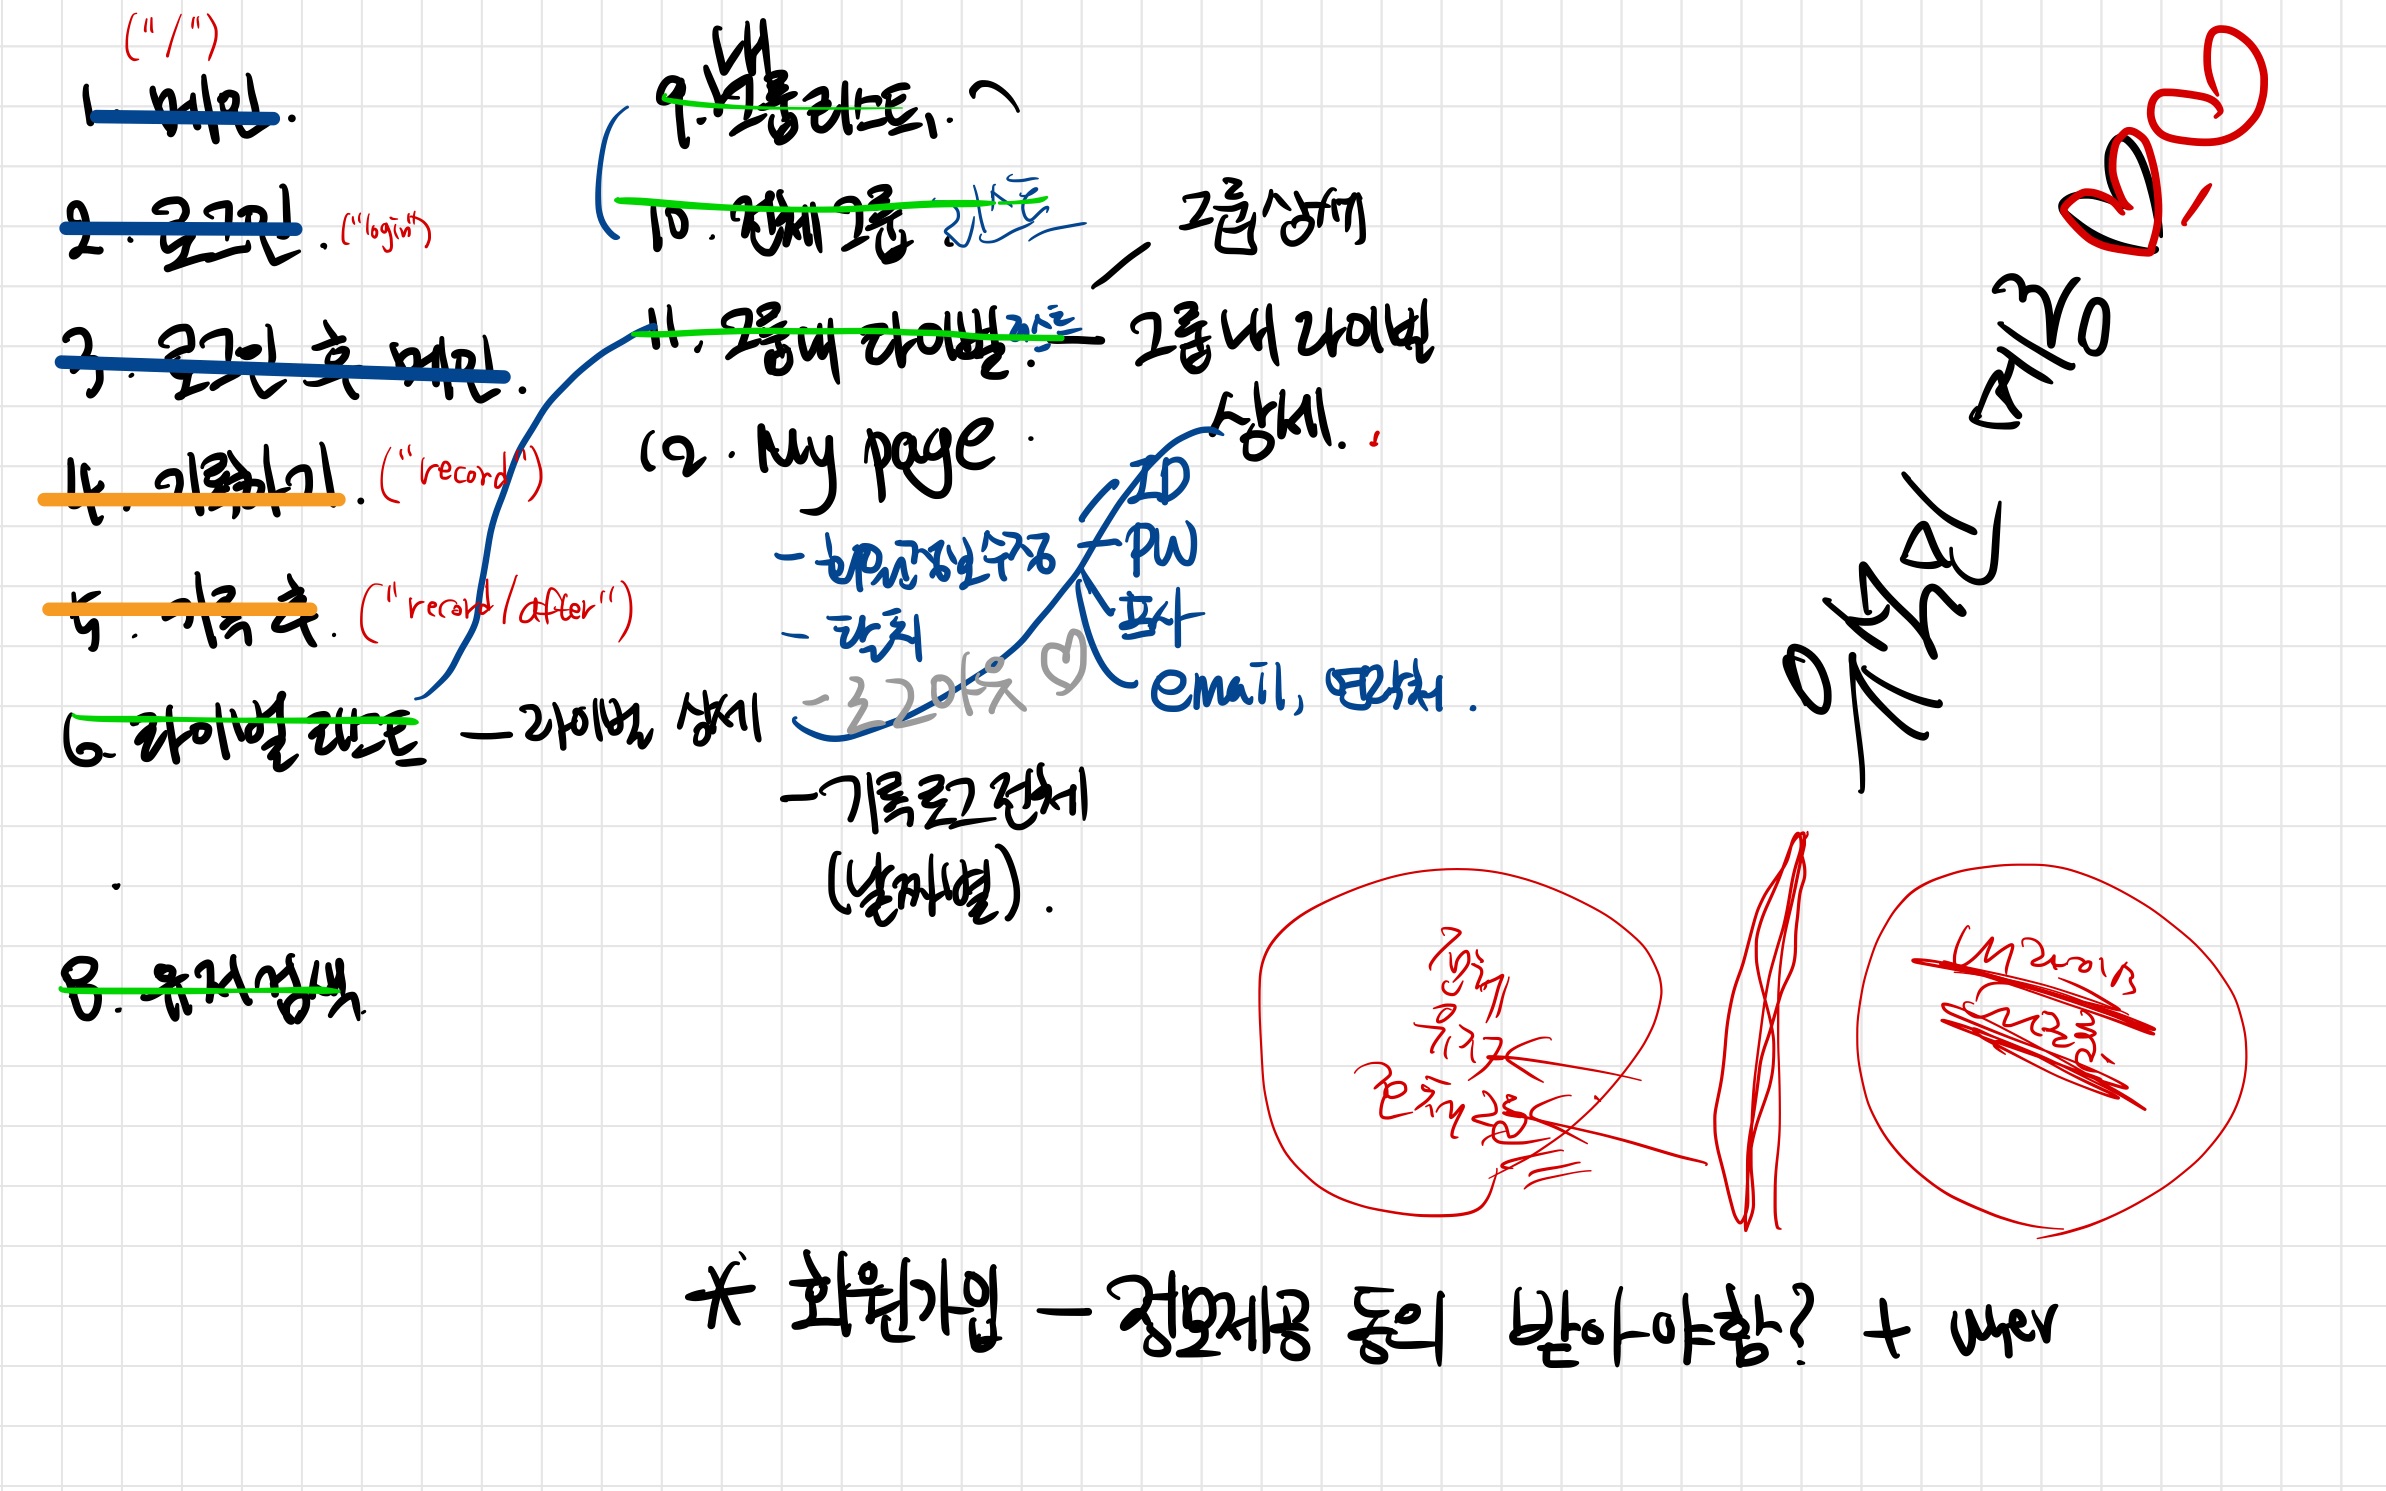 ("/")
1. 메인.
2. 로그인. ("login")
3. 로그인 후 메인.
4. 기록하기. ("record")
5. 기록 후. ("record/after")
6. 라이벌 리스트 — 라이벌 상세
8. 유저검색.
내
9. 그룹리스트.
10. 전체 그룹. 리스트
11. 그룹내 라이벌. 리스트 — 그룹 내 라이벌
상세.
그룹상세
12. My page.
- 개인정보수정
- ID
- PW
email, 연락처.
- 탈퇴
- 로그아웃 ♡
- 기록로그 전체
(날짜별).
전체
유저
전체그룹
내 라이벌
내 그룹
* 회원가입 — 정보제공 동의 받아야함? + user